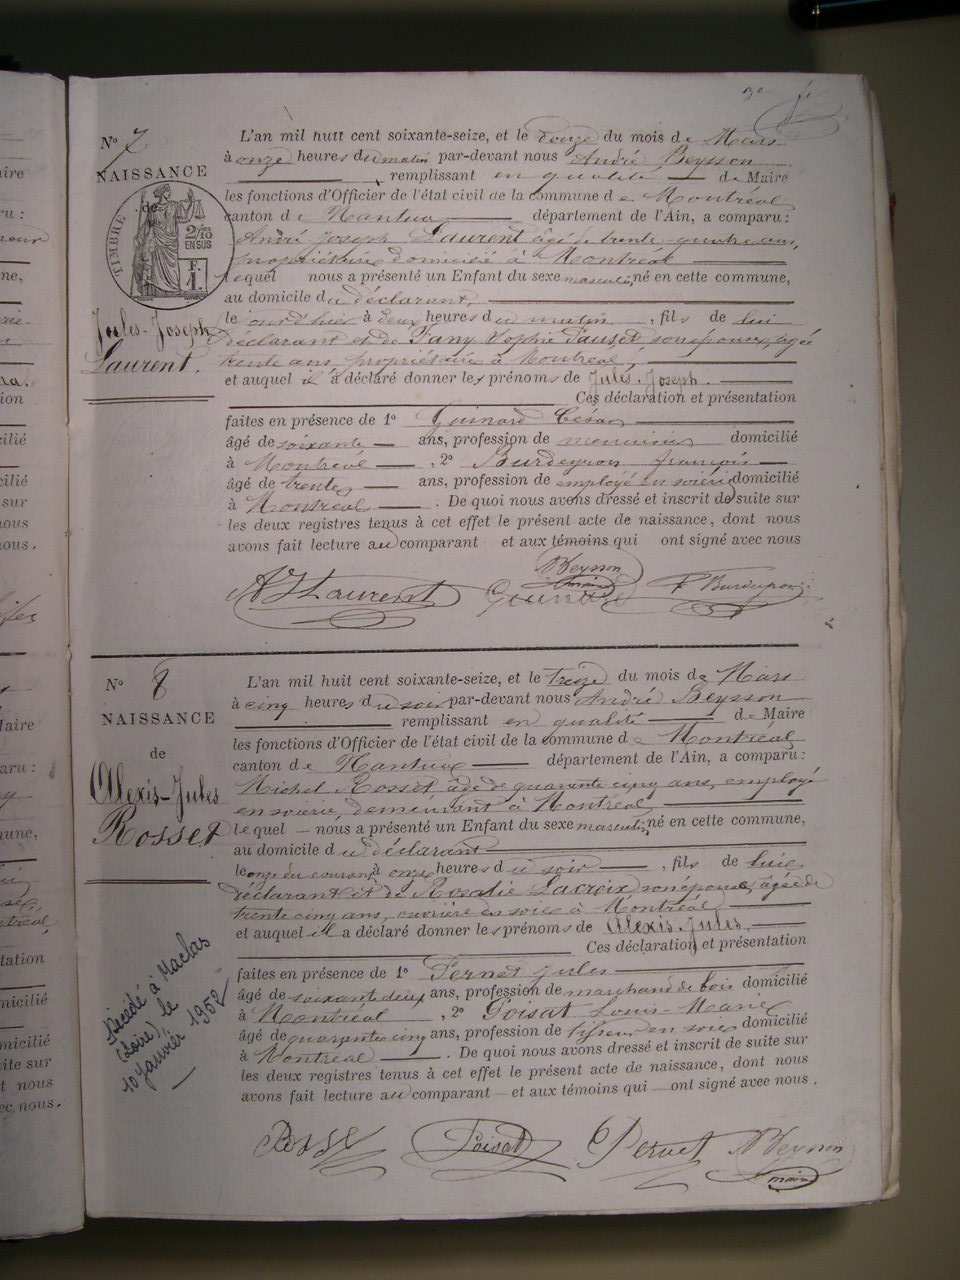 N° 7
NAISSANCE
de
TIMBRE
2/10
EN SUS
Jules-Joseph
Laurent.
L'an mil huit cent soixante-seize, et le douze du mois de Mars
à onze heures du matin par-devant nous André Beysson
remplissant en qualité de Maire
les fonctions d'Officier de l'état civil de la commune de Montréal
canton de Nantua département de l'Ain, a comparu :
André Joseph Laurent âgé de trente-quatre ans,
propriétaire domicilié à Montréal
lequel nous a présenté un Enfant du sexe masculin né en cette commune,
au domicile du déclarant,
le jourd'hier à deux heures du matin, fils de lui
déclarant et de Fany Sophie Pauset son épouse, âgée
trente ans, propriétaire à Montréal,
et auquel il a déclaré donner les prénoms de Jules-Joseph.
Ces déclaration et présentation
faites en présence de 1° Guinard César
âgé de soixante ans, profession de menuisier domicilié
à Montréal, 2° Burdeyron françois
âgé de trente ans, profession de employé en soierie domicilié
à Montréal. De quoi nous avons dressé et inscrit de suite sur
les deux registres tenus à cet effet le présent acte de naissance, dont nous
avons fait lecture au comparant et aux témoins qui ont signé avec nous
A J Laurent Guinard A Beysson maire F Burdeyron
N° 8
NAISSANCE
de
Alexis-Jules
Rosset
L'an mil huit cent soixante-seize, et le treize du mois de Mars
à cinq heures du soir par-devant nous André Beysson
remplissant en qualité de Maire
les fonctions d'Officier de l'état civil de la commune de Montréal
canton de Nantua département de l'Ain, a comparu :
Michel Rosset, âgé de quarante cinq ans, employé
en soierie, demeurant à Montréal
lequel nous a présenté un Enfant du sexe masculin né en cette commune,
au domicile du déclarant
le onze du courant à onze heures du soir, fils de lui
déclarant et de Rosalie Lacroix son épouse, âgée de
trente cinq ans, ouvrière en soies à Montréal
et auquel il a déclaré donner les prénoms de Alexis-Jules
Ces déclaration et présentation
faites en présence de 1° Pernet Jules
âgé de soixante deux ans, profession de marchand de bois domicilié
à Montréal, 2° Poisat Louis-Marie
âgé de quarante cinq ans, profession de tisseur en soies domicilié
à Montréal. De quoi nous avons dressé et inscrit de suite sur
les deux registres tenus à cet effet le présent acte de naissance, dont nous
avons fait lecture au comparant et aux témoins qui ont signé avec nous.
Décédé à Maclas
(Loire), le
10 Janvier 1952
Poisat Pernet A Beysson
maire